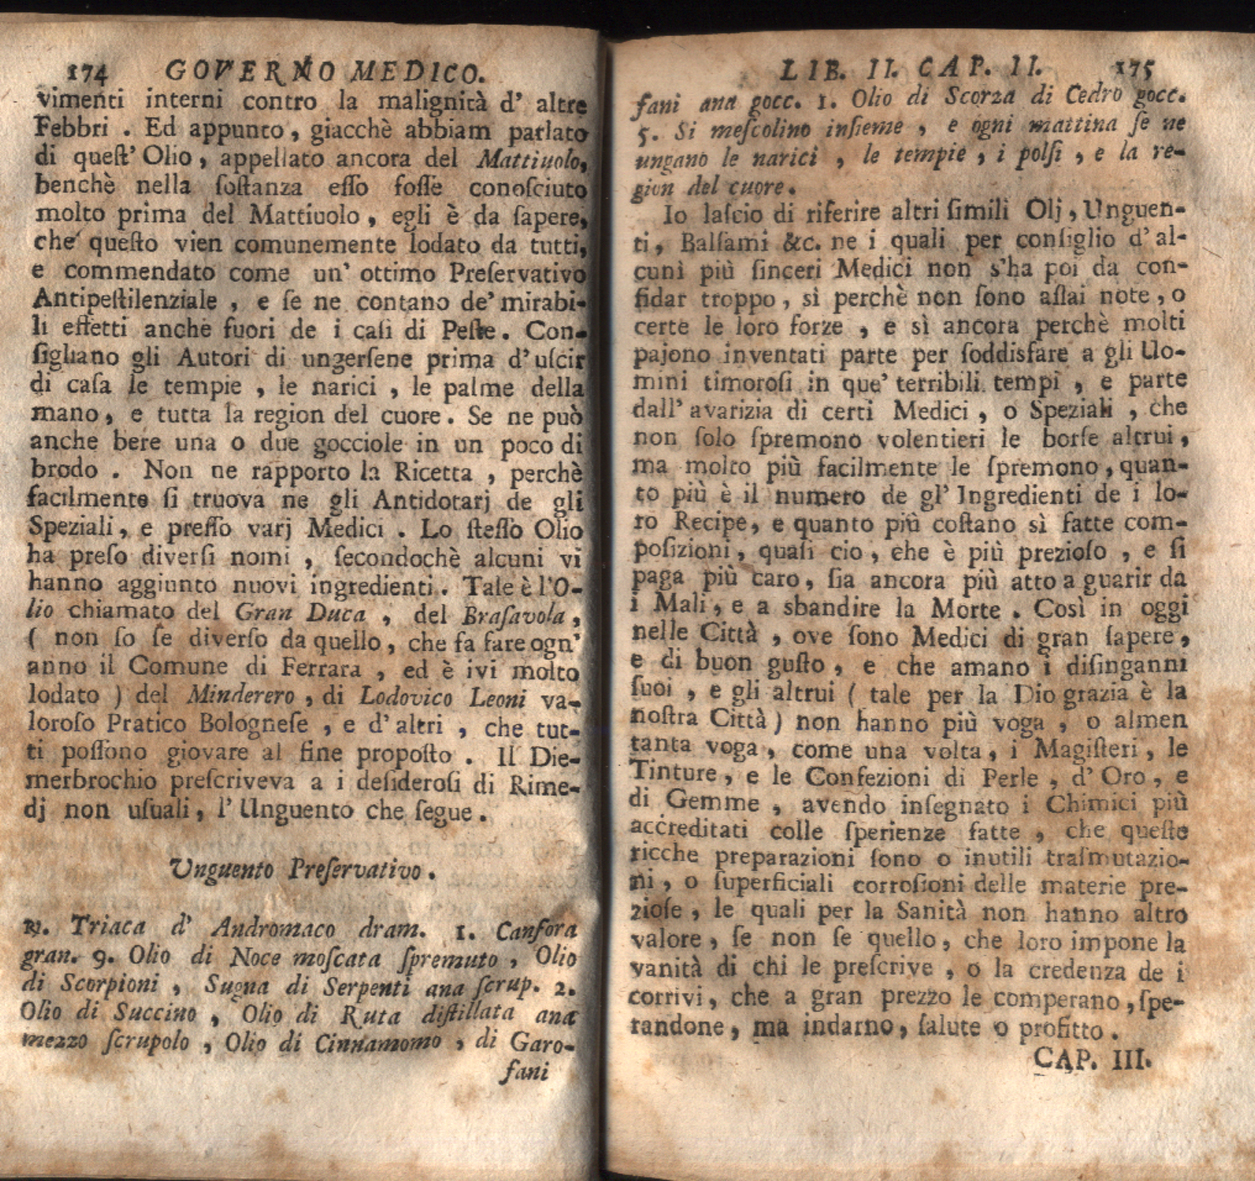 174 GOVERNO MEDICO.
vimenti interni contro la malignità d' altre
Febbri . Ed appunto, giacchè abbiam parlato
di queſt' Olio, appellato ancora del Mattiuolo,
benchè nella ſoſtanza eſſo foſſe conoſciuto
molto prima del Mattiuolo, egli è da ſapere,
che queſto vien comunemente lodato da tutti,
e commendato come un' ottimo Preſervativo
Antipeſtilenziale , e ſe ne contano de' mirabi-
li effetti anche fuori de i caſi di Peſte. Con-
ſigliano gli Autori di ungerſene prima d' uſcir
di caſa le tempie , le narici , le palme della
mano, e tutta la region del cuore. Se ne può
anche bere una o due gocciole in un poco di
brodo . Non ne rapporto la Ricetta , perchè
facilmente ſi truova ne gli Antidotarj de gli
Speziali, e preſſo varj Medici . Lo ſteſſo Olio
ha preſo diverſi nomi , ſecondochè alcuni vi
hanno aggiunto nuovi ingredienti. Tale è l'O-
lio chiamato del Gran Duca , del Braſavola,
( non ſo ſe diverſo da quello, che fa fare ogn'
anno il Comune di Ferrara , ed è ivi molto
lodato ) del Minderero , di Lodovico Leoni va-
loroſo Pratico Bologneſe , e d' altri , che tut-
ti poſſono giovare al fine propoſto . Il Die-
merbrochio preſcriveva a i deſideroſi di Rime-
dj non uſuali, l' Unguento che ſegue .
Unguento Preſervativo .
℞. Triaca d' Andromaco dram. 1. Canfora
gran. 9. Olio di Noce moſcata ſpremuto , Olio
di Scorpioni , Sugna di Serpenti ana ſcrup. 2.
Olio di Succino , Olio di Ruta diſtillata ana
mezzo ſcrupolo , Olio di Cinnamomo , di Garo-
fani
LIB. II. CAP. II. 175
fani ana gocc. 1. Olio di Scorza di Cedro gocc.
5. Si meſcolino inſieme , e ogni mattina ſe ne
ungano le narici , le tempie , i polſi , e la re-
gion del cuore.
Io laſcio di riferire altri ſimili Olj, Unguen-
ti, Balſami &c. ne i quali per conſiglio d' al-
cuni più ſinceri Medici non s'ha poi da con-
fidar troppo, sì perchè non ſono aſſai note, o
certe le loro forze , e sì ancora perchè molti
pajono inventati parte per ſoddisfare a gli Uo-
mini timoroſi in que' terribili tempi , e parte
dall' avarizia di certi Medici , o Speziali , che
non ſolo ſpremono volentieri le borſe altrui,
ma molto più facilmente le ſpremono, quan-
to più è il numero de gl' Ingredienti de i lo-
ro Recipe, e quanto più coſtano sì fatte com-
poſizioni, quaſi cio, che è più prezioſo , e ſi
paga più caro, ſia ancora più atto a guarir da
i Mali, e a sbandire la Morte . Così in oggi
nelle Città , ove ſono Medici di gran ſapere,
e di buon guſto, e che amano i diſinganni
ſuoi , e gli altrui ( tale per la Dio grazia è la
noſtra Città ) non hanno più voga , o almen
tanta voga, come una volta, i Magiſteri, le
Tinture, e le Confezioni di Perle , d' Oro, e
di Gemme , avendo inſegnato i Chimici più
accreditati colle ſperienze fatte , che queſte
ricche preparazioni ſono o inutili traſmutazio-
ni , o ſuperficiali corroſioni delle materie pre-
zioſe , le quali per la Sanità non hanno altro
valore, ſe non ſe quello, che loro impone la
vanità di chi le preſcrive, o la credenza de i
corrivi, che a gran prezzo le comperano, ſpe-
randone, ma indarno, ſalute o profitto .
CAP. III.